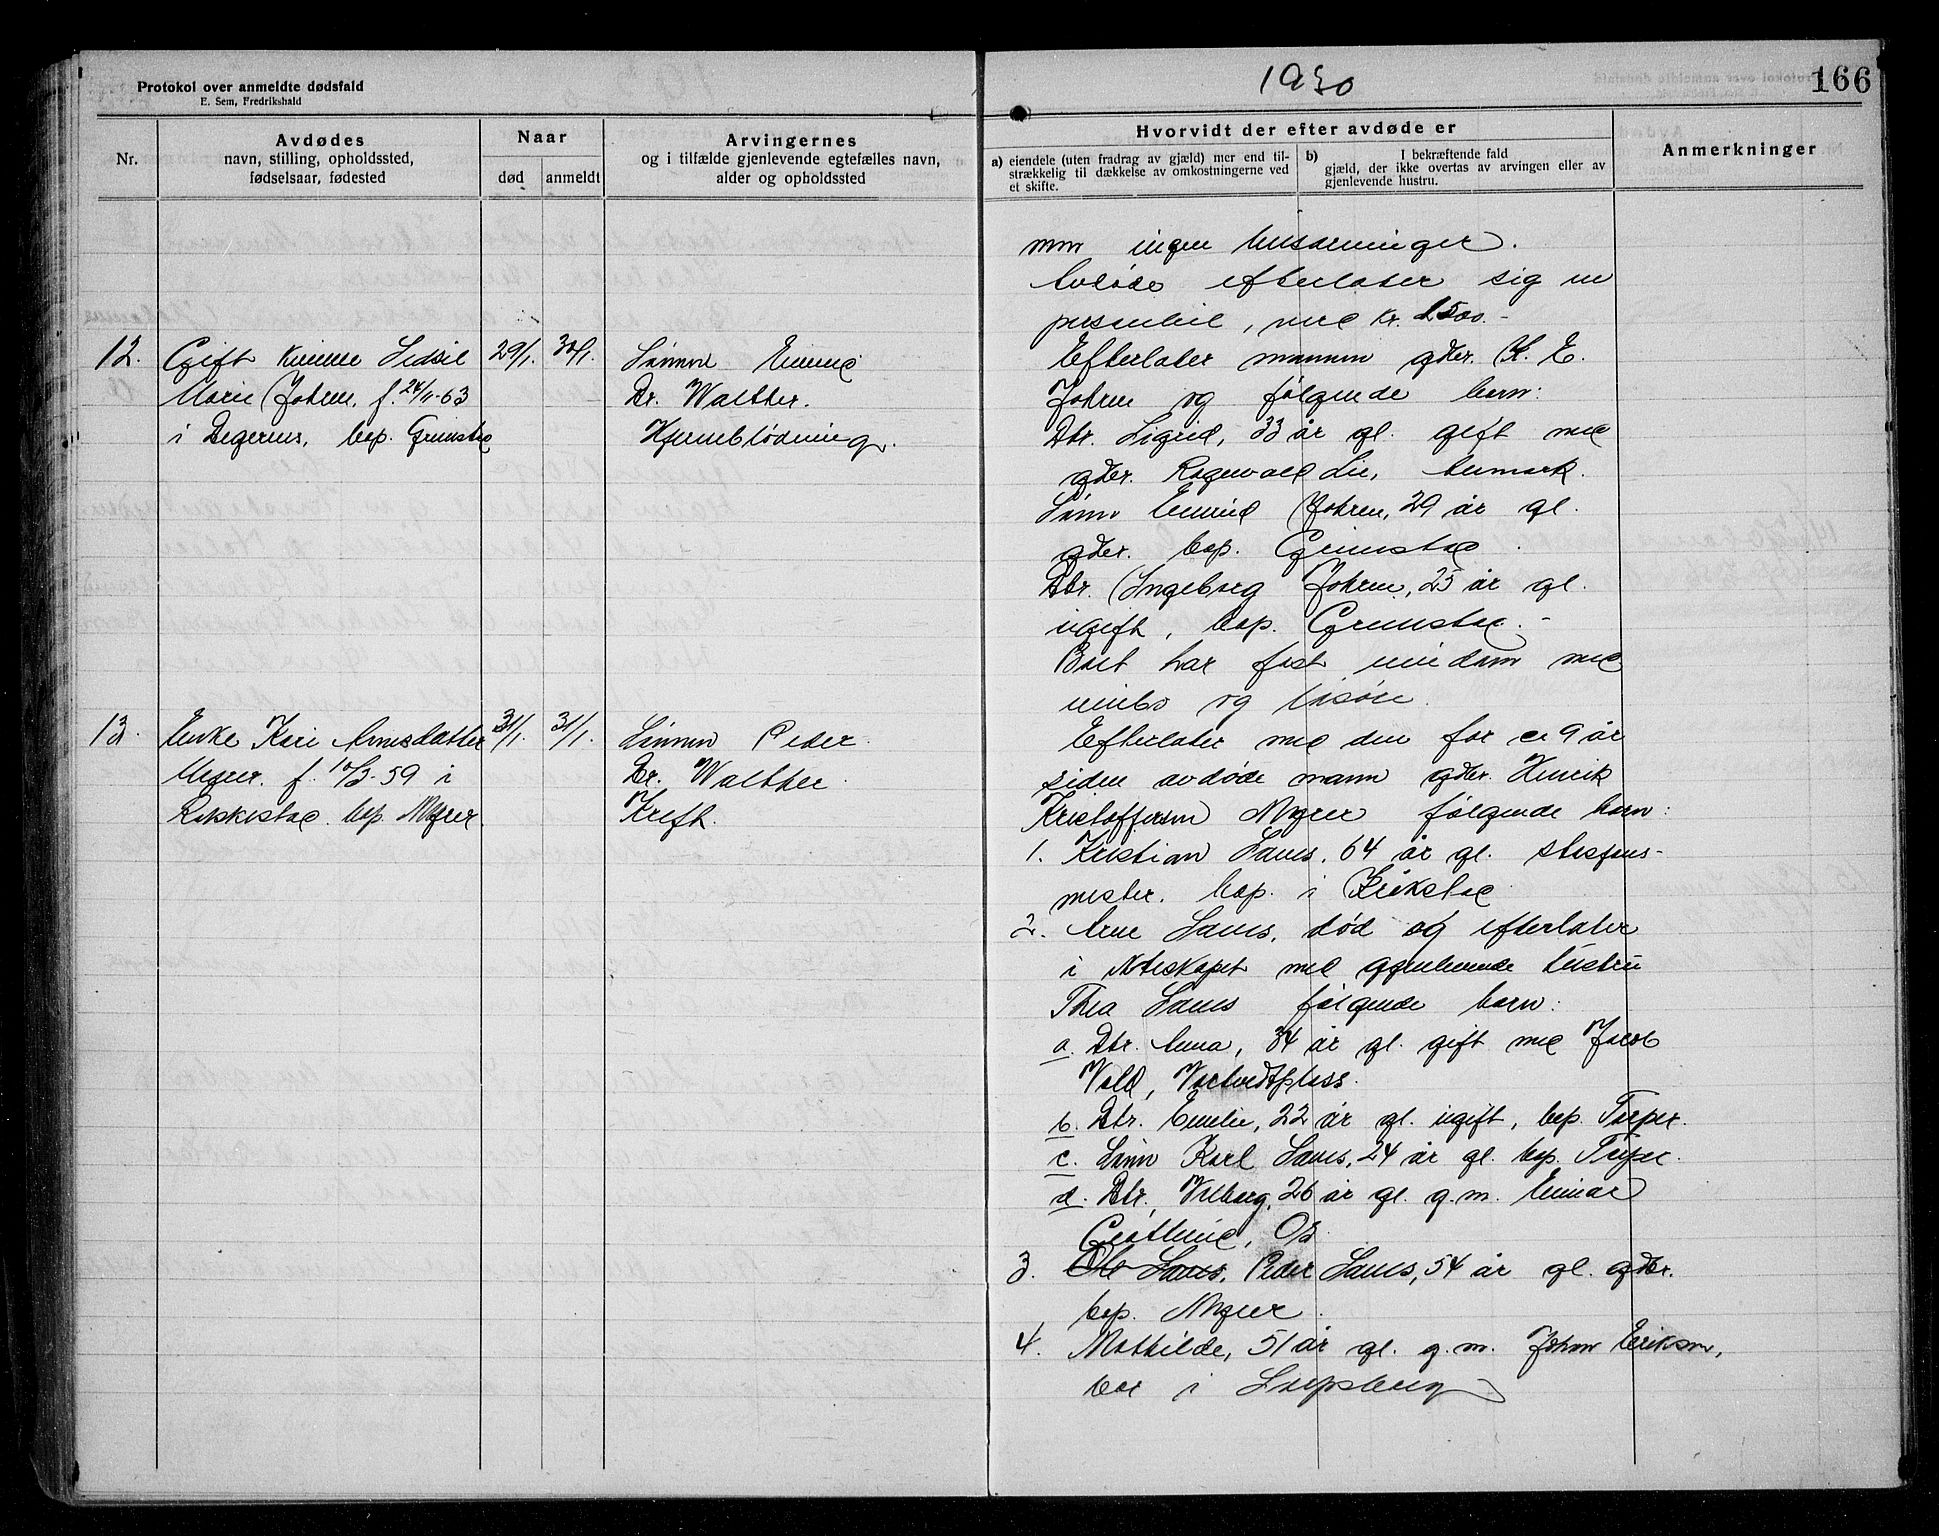 Protokol over anmeldte dødsfald
E. Sem, Fredrikshald
1930
166
Nr.
Avdødes
navn, stilling, opholdssted,
fødselsaar, fødested
Naar
død
anmeldt
Arvingernes
og i tilfælde gjenlevende egtefælles navn,
alder og opholdssted
Hvorvidt der efter avdøde er
a) eiendele (uten fradrag av gjæld) mer end til-
strækkelig til dækkelse av omkostningerne ved
et skifte.
b) I bekræftende fald
gjæld, der ikke overtas av arvingen eller av
gjenlevende hustru.
Anmerkninger
men ingen livsarvinger.
Avdøde efterlater sig en
, ved kr. 1500.-
12.
Gift kvinne Sidsel
Marie Johren, f. 24/11-63
i Degernes, bop. Grimstad
29/1.
30/1.
Sønnen Eivind
Dr. Walther.
Hjerneblødning.
Efterlater mannen gdbr. K. E.
Johren og følgende barn:
Dtr. Sigrid, 33 år gl. gift med
gdbr. Ragnvald Lie,
Sønn Eivind Johren, 29 år gl.
gdbr. bop. Grimstad.
Dtr. Ingeborg Johren, 25 år gl.
ugift, bop. Grimstad.-
Boet har fast eiendom med
innbo og løsøre.
13.
Enke Kari Arnesdatter
Myrer. f. 10/3-59 i
Rakkestad. bop. Myrer.
31/1.
31/1.
Sønnen Peder.
Dr. Walther.
Kreft.
Efterlater med den for ca 9 år
siden avdøde mann gdbr. Henrik
Kristoffersen Myrer følgende barn:
1. Kristian Saues, 64 år gl. stasjons-
mester. bop. i
2. Arne Saues, død og efterlater
i ekteskapet med gjenlevende hustru
Thea Saues følgende barn:
a. Dtr. Anna, 34 år gl. gift med Jacob
Vold,
b. Dtr. Emelie, 22 år gl. ugift, bop. Torper.
c. Sønn Karl Saues, 24 år gl. bop. Torper.
d. Dtr. Valborg, 26 år gl. g.m. Einar
3. Ole Saues, Peder Saues, 54 år gl. gdbr.
bop. Myrer.
4. Mathilde, 51 år gl. g.m. Johan Eriksen,
bor i Sarpsborg